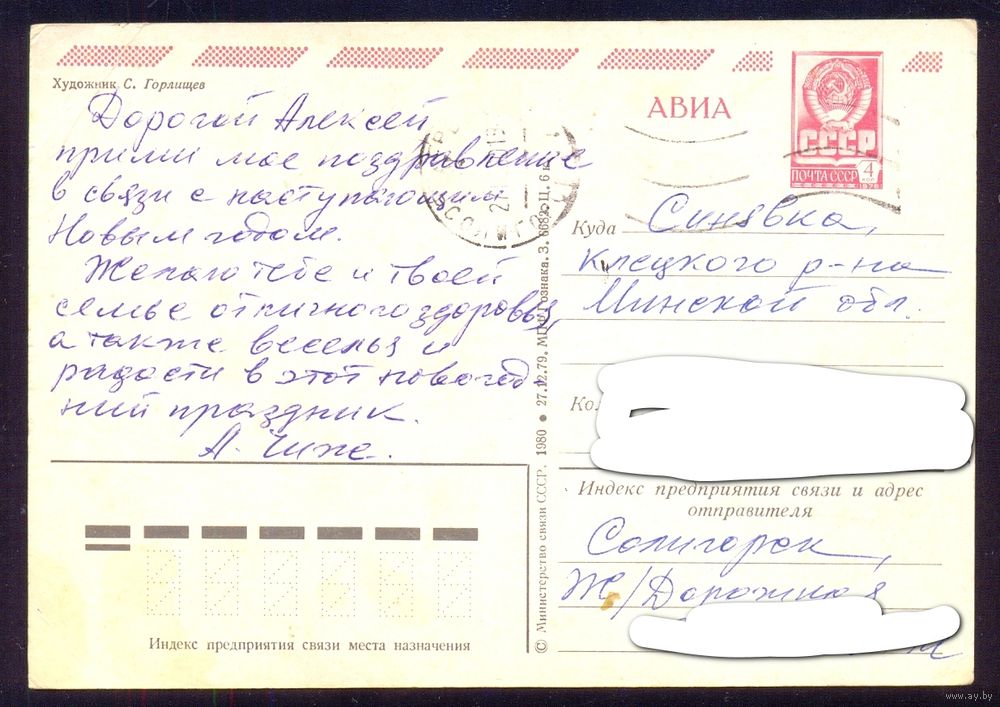 Художник С. Горлищев
АВИА
СССР
ПОЧТА СССР
4
КОП
Дорогой Алексей
прими мое поздравление
в связи с наступающим
Новым годом.
Желаю тебе и твоей
семье отличного здоровья,
а также веселья и
радости в этот новогод
ний праздник.
А. Чиже.
СОЛИГО
Куда Синявка,
Клецкого р-на
Минской обл.
Индекс предприятия связи и адрес
отправителя
Солигорск,
Ж/Дорожная
© Министерство связи СССР. 1980 • 27.12.79. МПФ Гознака. З. 6682. Ц. 6 к.
Индекс предприятия связи места назначения
www.ay.by